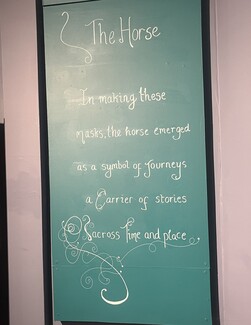 The Horse
In making these
masks, the horse emerged
as a symbol of journeys
a Carrier of stories
across time and place